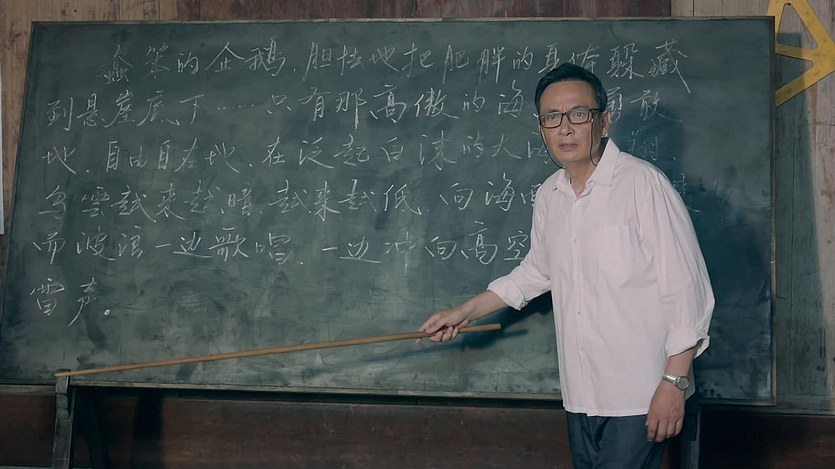 蠢笨的企鹅，胆怯地把肥胖的身体躲藏
到悬崖底下……只有那高傲的海 勇敢
地，自由自在地，在泛起白沫的大 翔．
乌云越来越暗，越来越低，向海
而波浪一边歌唱，一边冲向高空
雷声。